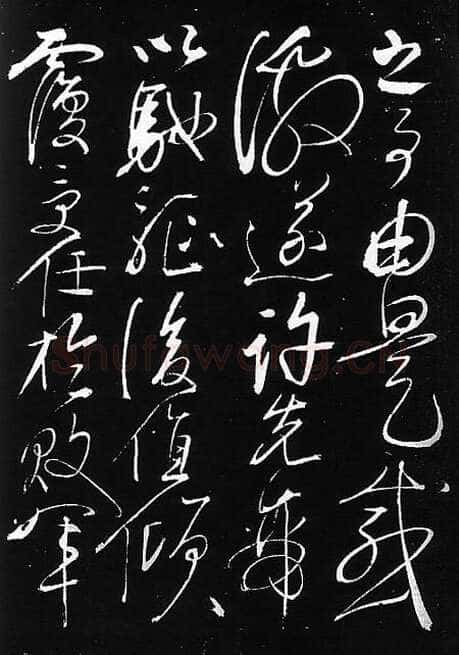 之事由是感
激遂許先帝
以馳驅後值傾
覆受任於敗軍
shufawang.cn